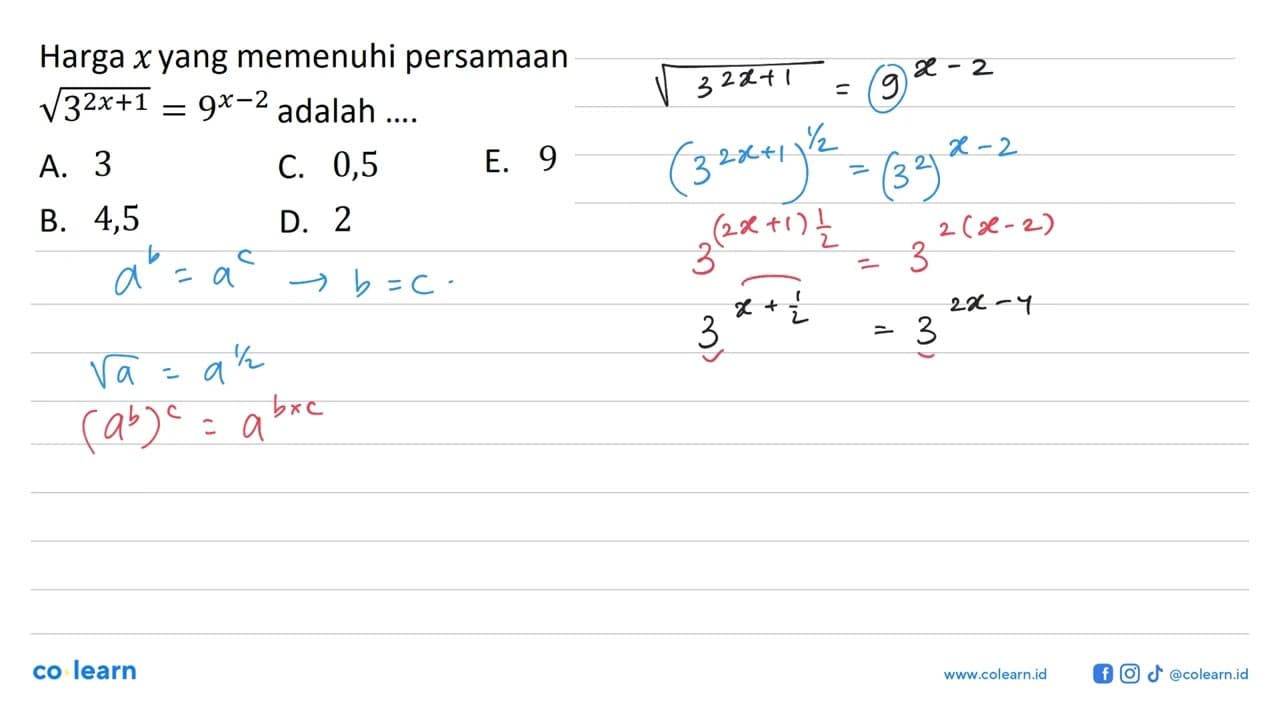 Harga x yang memenuhi persamaan
√3^{2x+1} = 9^{x−2} adalah ....
A. 3 C. 0,5 E. 9
B. 4,5 D. 2
a^b = a^c → b = c .
√a = a^{1/2}
(a^b)^c = a^{b×c}
√3^{2x+1} = 9^{x−2}
(3^{2x+1})^{1/2} = (3^2)^{x−2}
3^{(2x+1) 1/2} = 3^{2(x−2)}
3^{x+1/2} = 3^{2x−4}
co learn
www.colearn.id @colearn.id